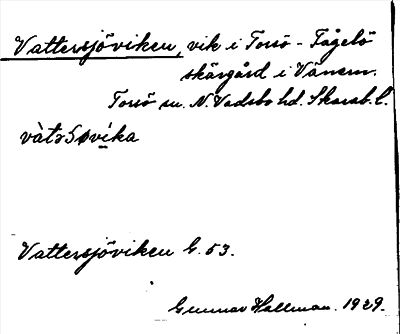 Vattersjöviken, vik i Torsö - Fågelö
skärgård i Vänern.
Torsö sn. N. Vadsbo hd. Skarab. l.
Vattersjöviken G. 53.
Gunnar Hallman. 1929.